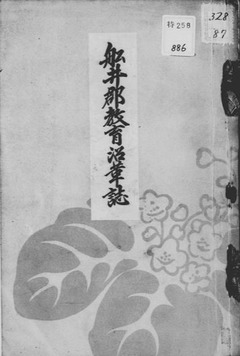 特259
886
328
87
船井郡教育沿革誌